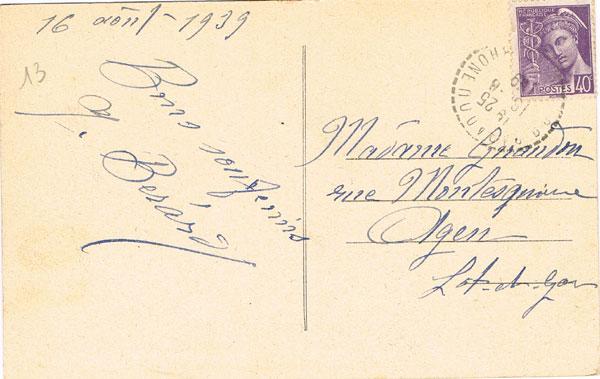 16 août 1939
13
Bons souvenirs
Y. Besard
RÉPUBLIQUE FRANÇAISE
POSTES 40c
Madame Girardon
rue Montesquieu
Agen
Lot-et-Gar